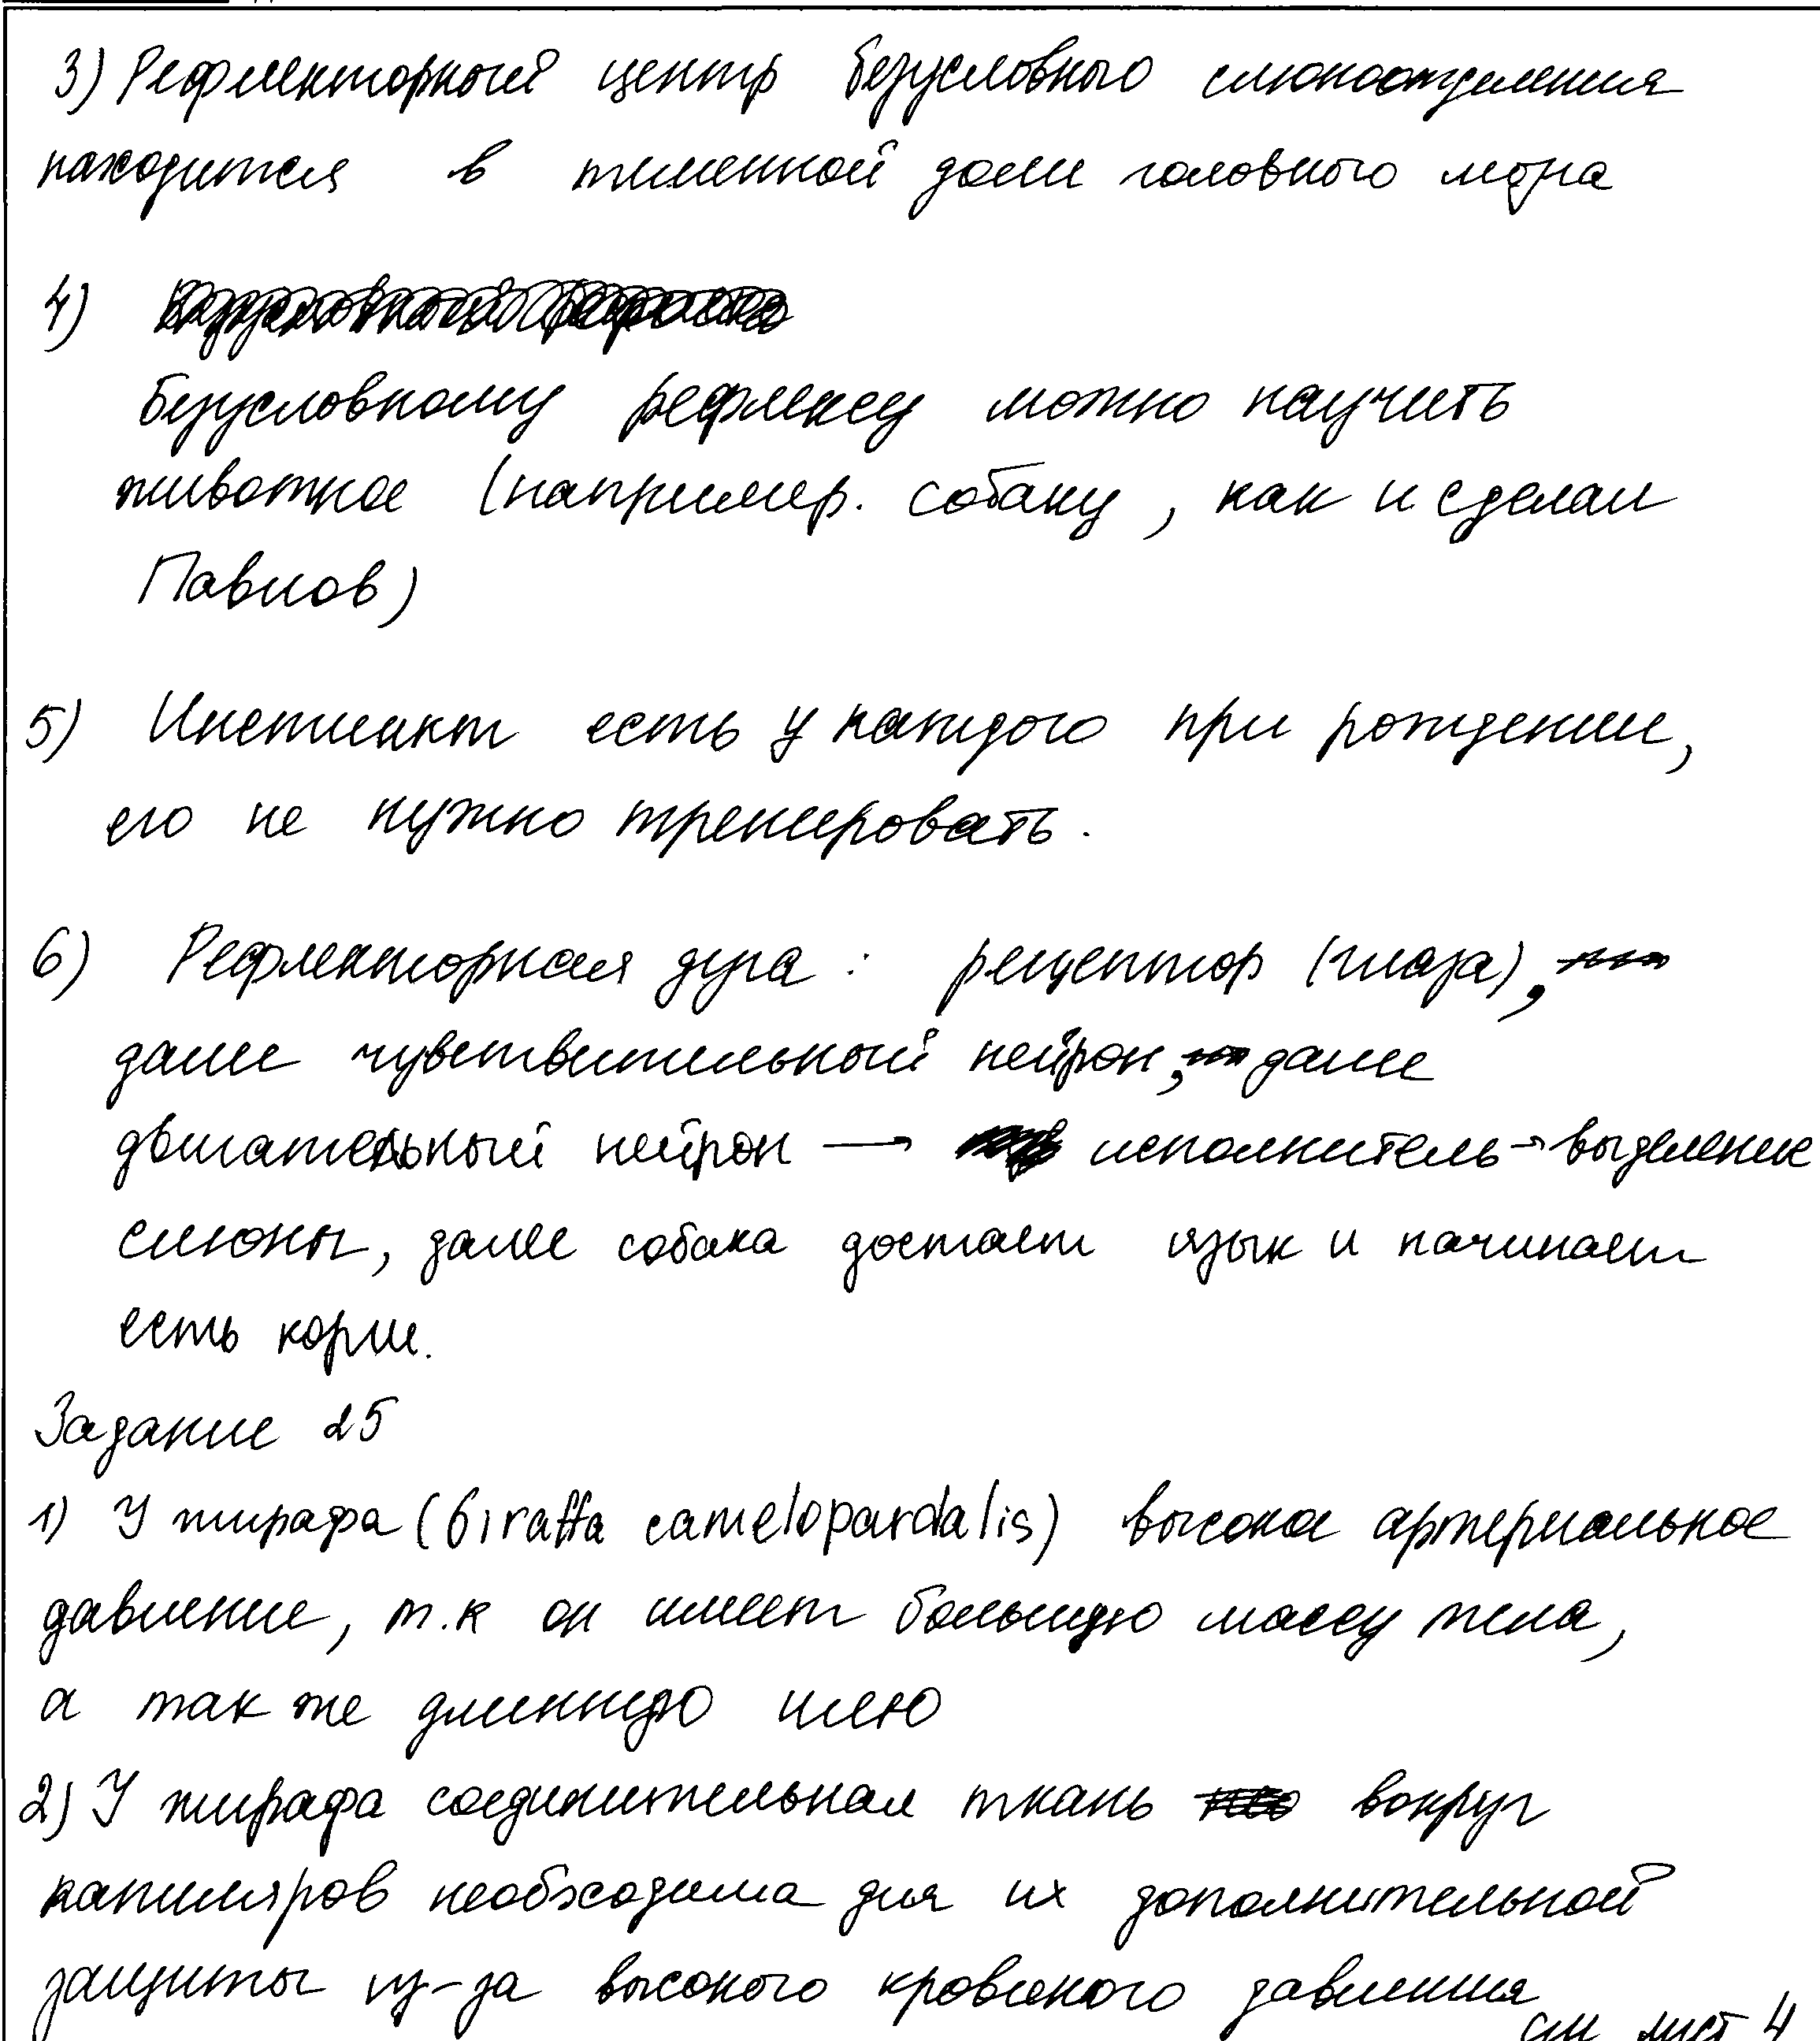 3) Рефлекторный центр безусловного слюноотделения
находится в теменной доли головного мозга
4)
безусловному рефлексу можно научить
животное (например. собаку, как и сделал
Павлов)
5) Инстинкт есть у каждого при рождении,
его не нужно тренировать.
6) Рефлекторная дуга : рецептор (глаза),
далее чувствительный нейрон, далее
двигательный нейрон → исполнитель → выделение
слюны, далее собака достает язык и начинает
есть корм.
Задание 25
1) У жирафа (Giraffa camelopardalis) высокое артериальное
давление, т.к он имеет большую массу тела,
а так же длинную шею
2) У жирафа соединительная ткань вокруг
капиляров необходима для их дополнительной
защиты из-за высокого кровяного давления
см лист 4